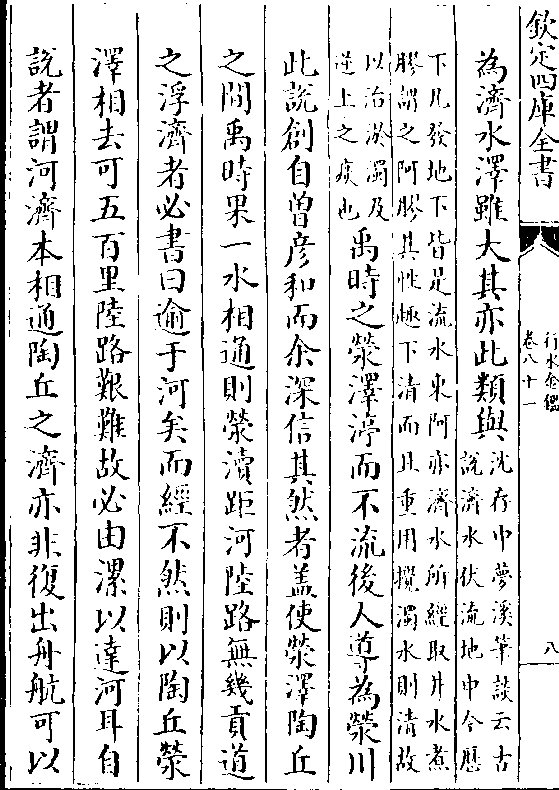 欽定四庫全書
行水金鑑
卷八十一
八
為濟水澤雖大其亦此類與沈存中夢溪筆談云古
說濟水伏流地中今歷
下凡發地下皆是流水東阿亦濟水所經取井水煮
膠謂之阿膠其性趣下清而且重用攪濁水則清故
以治淤濁及
逆上之痰也禹時之滎澤渟而不流後人導為滎川
此説創自曽彦和而余深信其然者盖使滎澤陶丘
之間禹時果一水相通則滎瀆距河陸路無幾貢道
之浮濟者必書曰逾于河矣而經不然則以陶丘滎
澤相去可五百里陸路艱難故必由漯以達河耳自
説者謂河濟本相通陶丘之濟亦非復出舟航可以